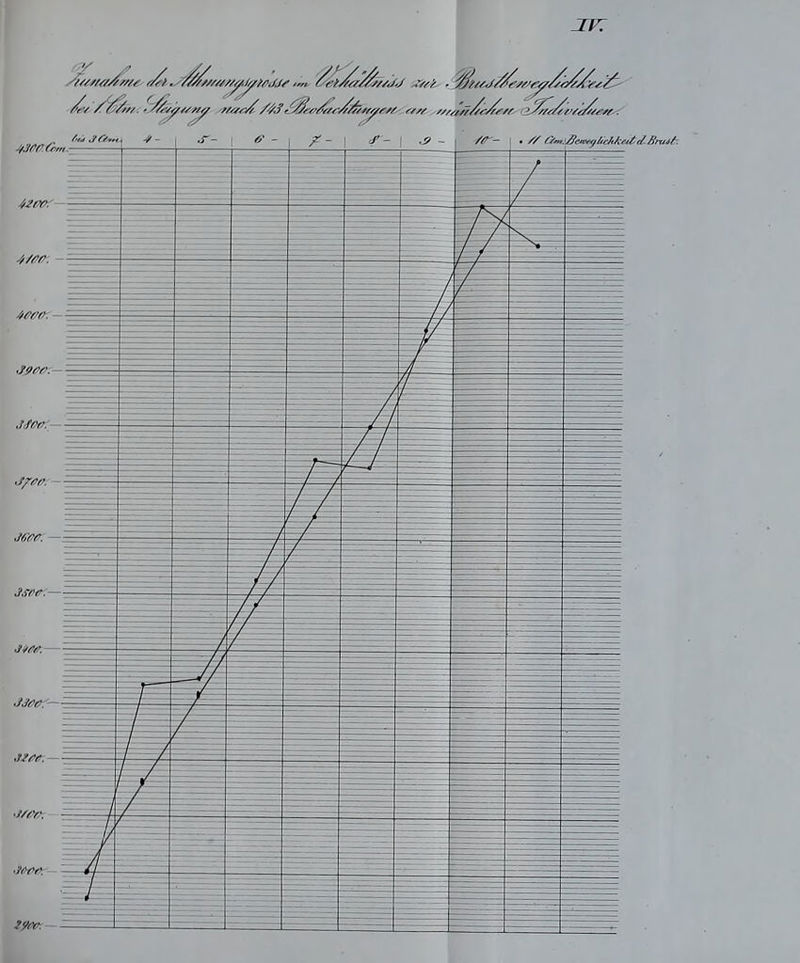 IV.
Zunahme der Athmungsgrösse im Verhältniss zur Brustbeweglichkeit
bei 1 Ctm. Steigung nach 143 Beobachtungen an mänlichen Individuen.
bis 3 Ctm. 4 - 5 - 6 - 7 - 8 - 9 - 10 - 11 Ctm. Beweglichkeit d. Brust.
4300 Ccm.
4200.
4100.
4000.
3900.
3800.
3700.
3600.
3500.
3400.
3300.
3200.
3100.
3000.
2900.